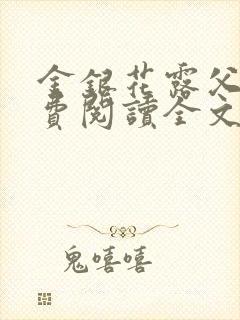 金銀花露父
費閱讀全文
鬼嘻嘻